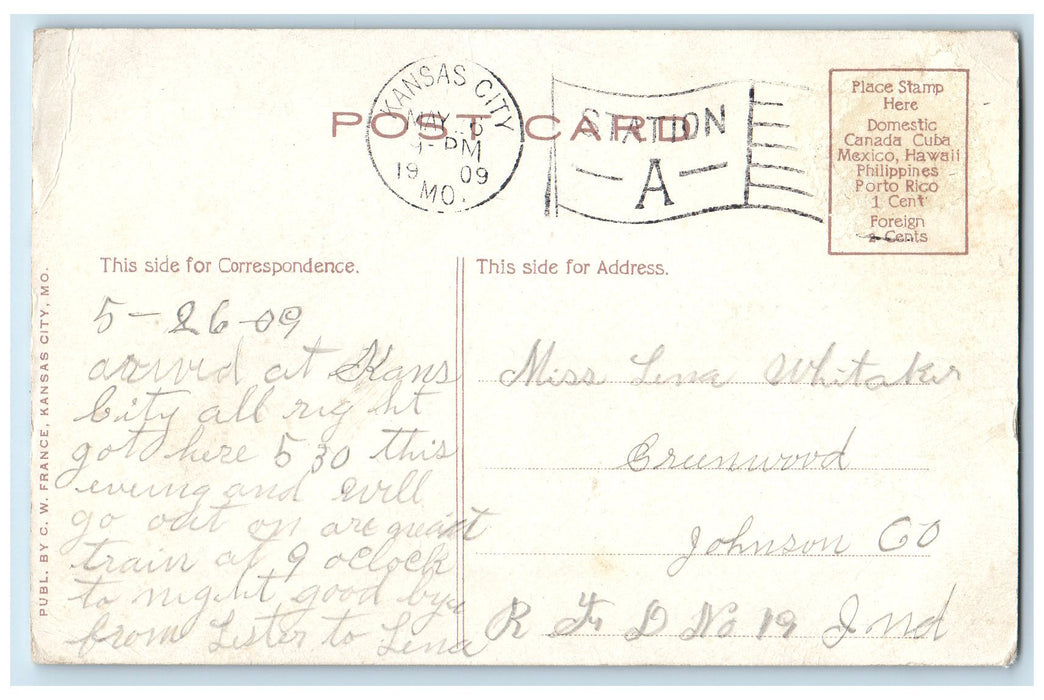 POST CARD
KANSAS CITY
MAY 26
PM
1909
MO.
STATION
A
Place Stamp
Here
Domestic
Canada Cuba
Mexico, Hawaii
Philippines
Porto Rico
1 Cent
Foreign
2 Cents
This side for Correspondence.
5-26-09
arrived at Kans
City all right
got here 5 30 this
evening and will
go out on
train at 9 oclock
to night good bye
from Lester to Lena
This side for Address.
Miss Lena Whitaker
Greenwood
Johnson CO
R F D No 19 Ind
PUBL. BY C. W. FRANCE, KANSAS CITY, MO.